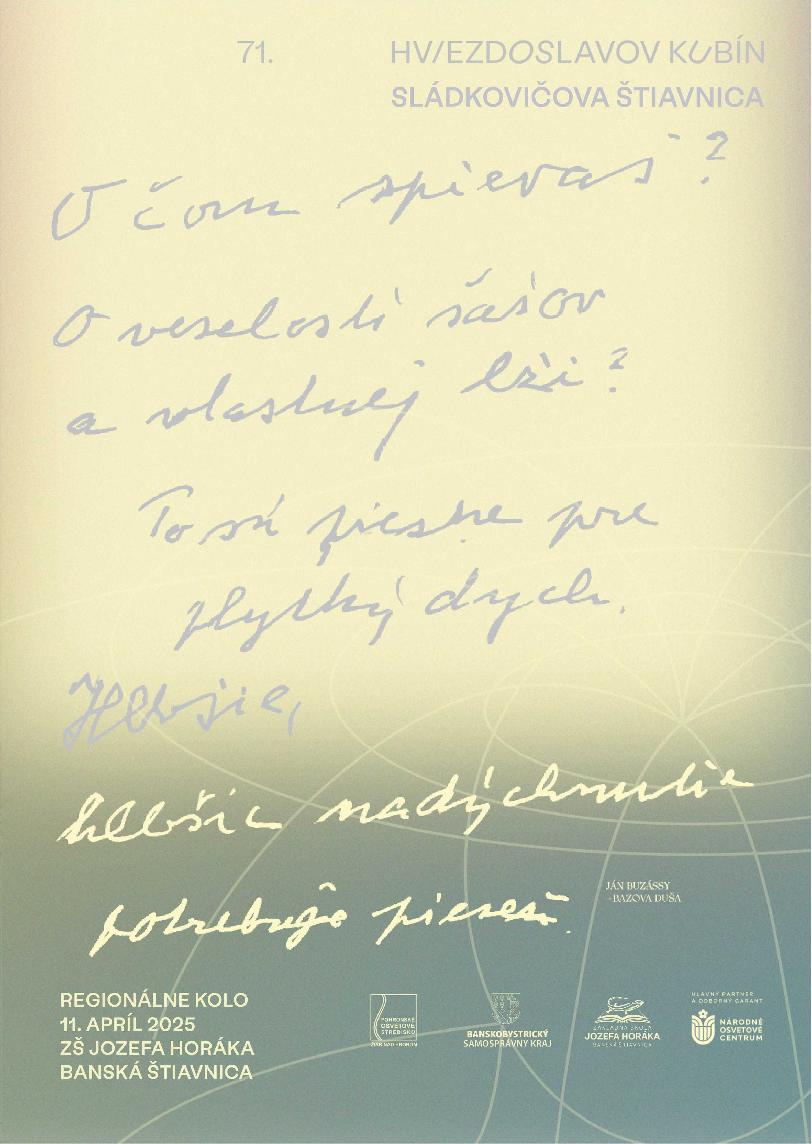 71. HVIEZDOSLAVOV KUBÍN
SLÁDKOVIČOVA ŠTIAVNICA
O čom spievaš?
O veselosti šašov
a vlastnej lži?
To sú piesne pre
plytký dych.
Hlbšie,
hlbšie nadýchnutie
potrebuje pieseň.
JÁN BUZÁSSY
–BAZOVA DUŠA
REGIONÁLNE KOLO
11. APRÍL 2025
ZŠ JOZEFA HORÁKA
BANSKÁ ŠTIAVNICA
POHRONSKÉ
OSVETOVÉ
STREDISKO
ŽIAR NAD HRONOM
BANSKOBYSTRICKÝ
SAMOSPRÁVNY KRAJ
ZÁKLADNÁ ŠKOLA
JOZEFA HORÁKA
BANSKÁ ŠTIAVNICA
HLAVNÝ PARTNER
A ODBORNÝ GARANT
NÁRODNÉ
OSVETOVÉ
CENTRUM